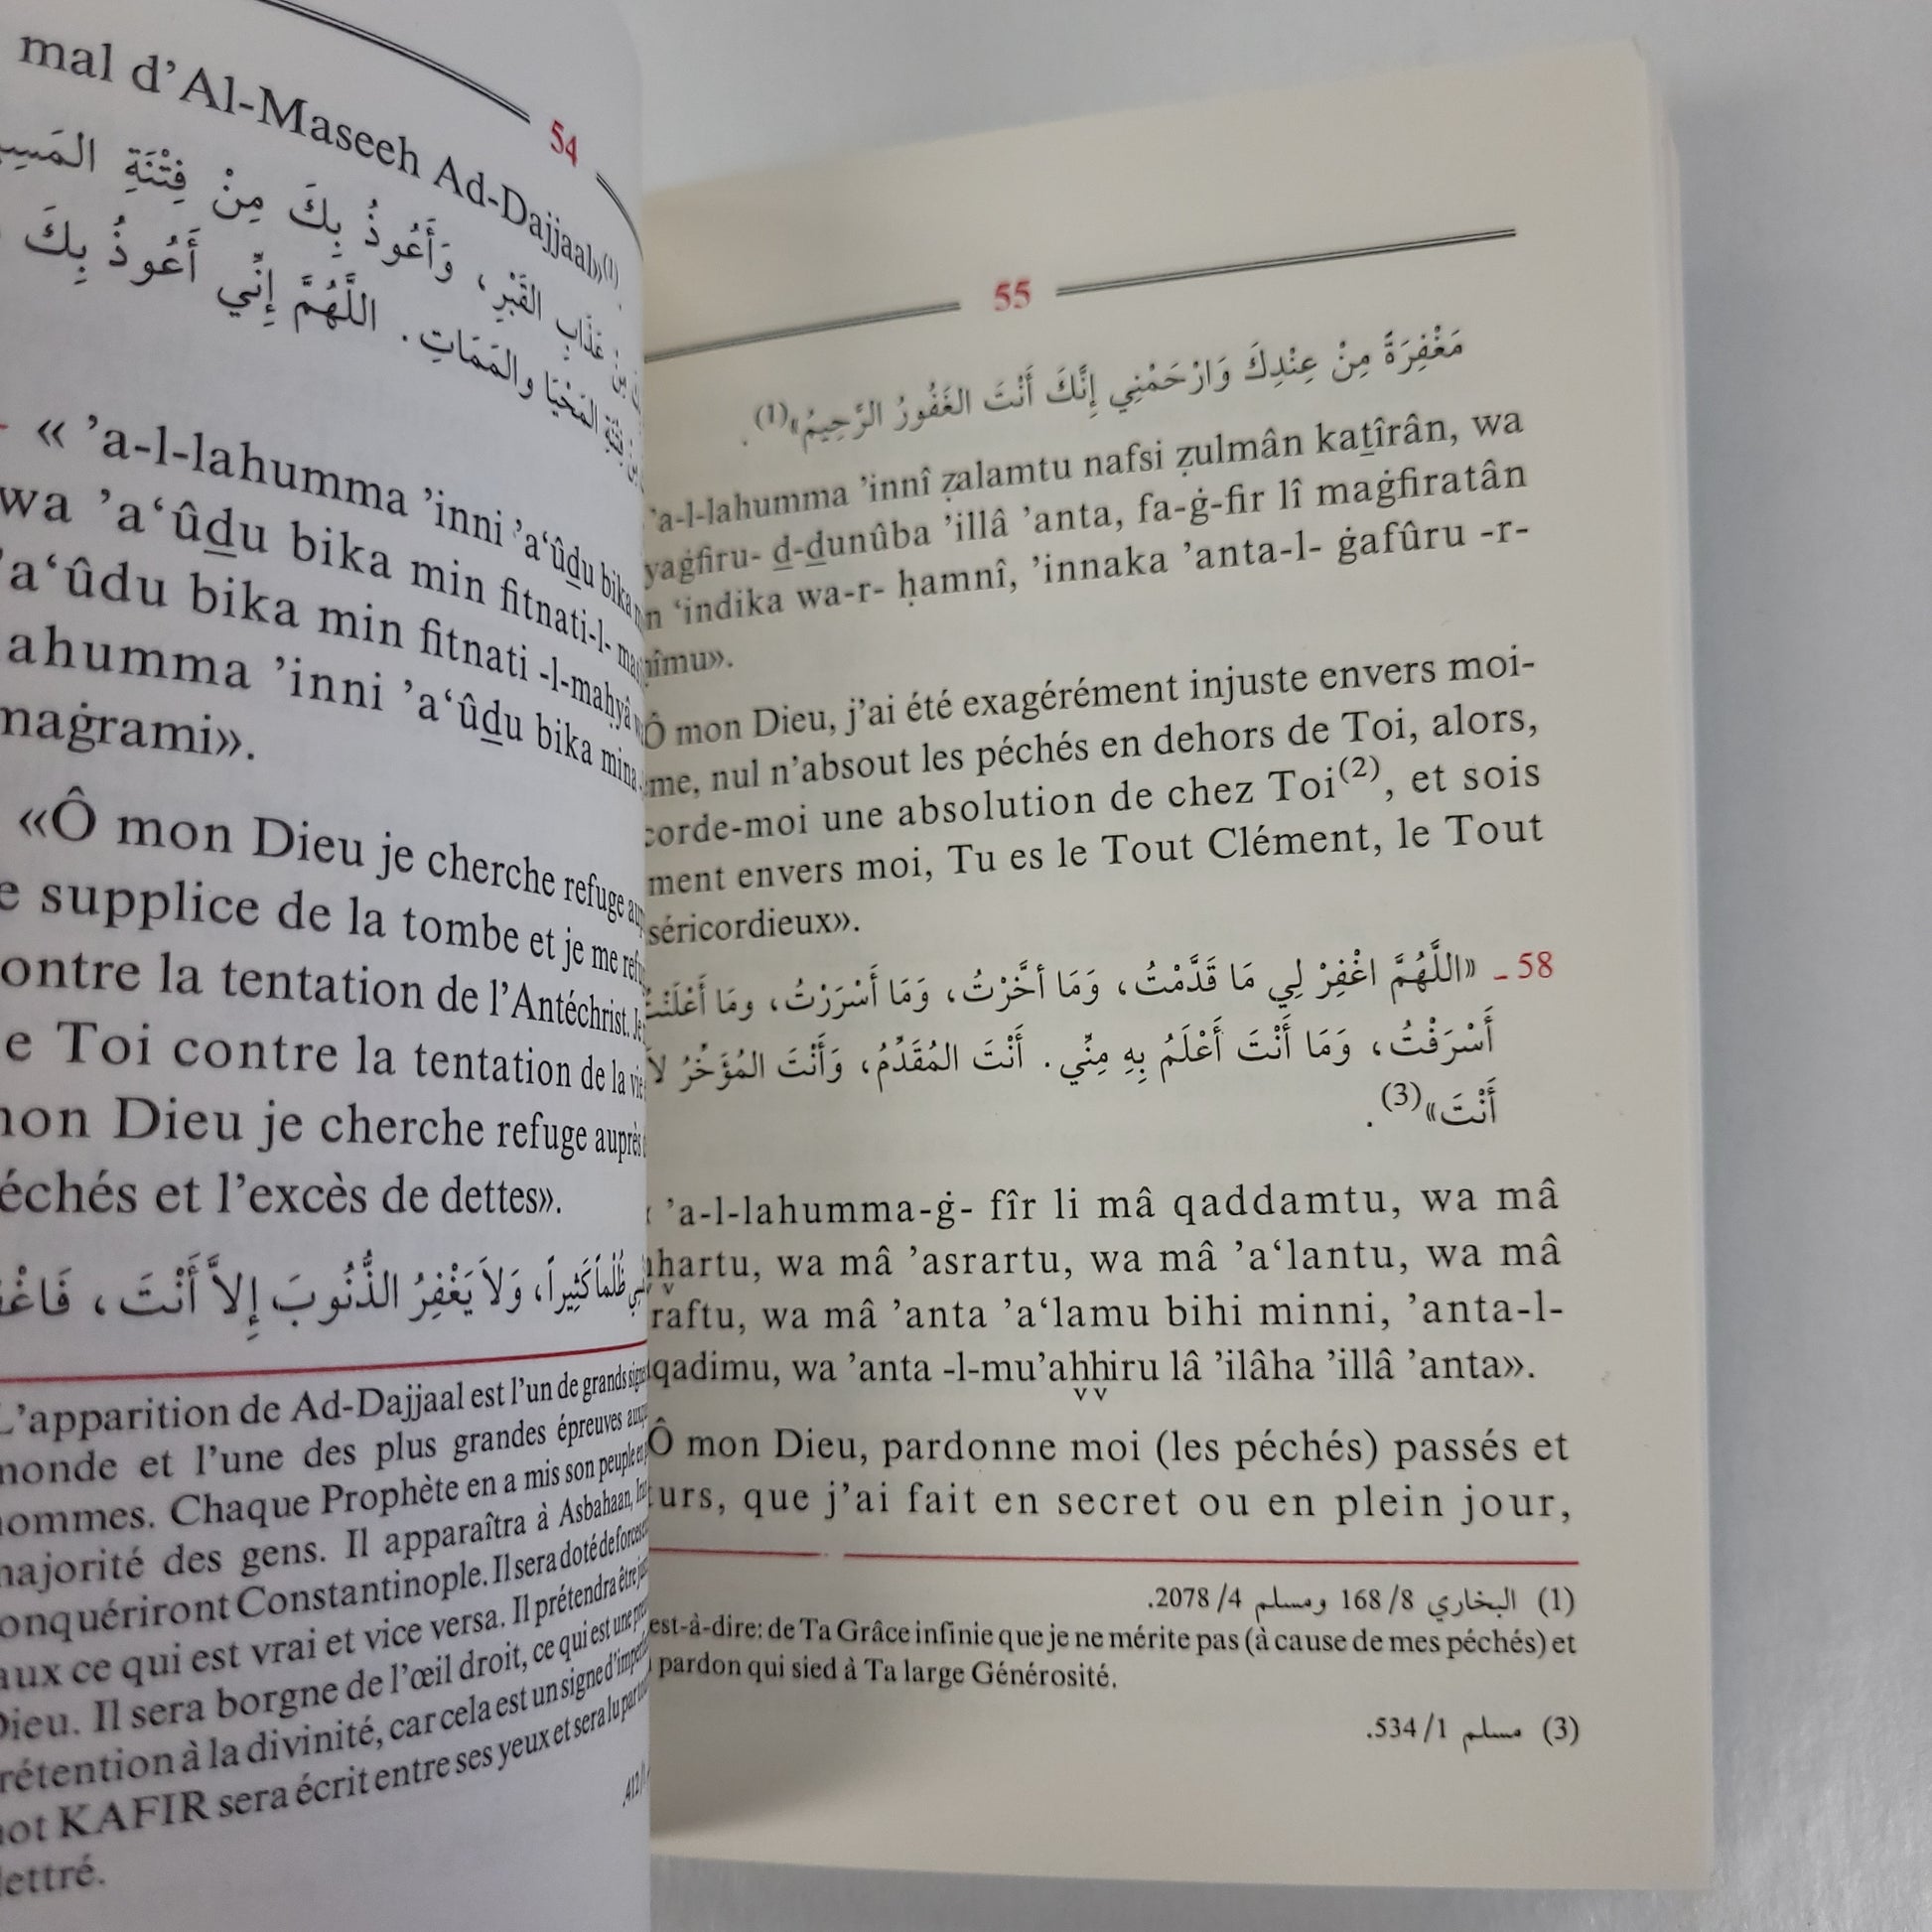 mal d'Al-Maseeh Ad-Dajjaal»(1).
54
عَذَابِ القَبْرِ، وَأَعُوذُ بِكَ مِنْ فِتْنَةِ
المَحْيَا والمَمَاتِ. اللَّهُمَّ إِنِّي أَعُوذُ بِكَ
« ’a-l-lahumma ’inni ’a‘ûḏu bika
wa ’a‘ûḏu bika min fitnati-l-
’a‘ûdu bika min fitnati -l-maḥyâ
ahumma ’inni ’a‘ûḏu bika mina
maġrami».
«Ô mon Dieu je cherche refuge
supplice de la tombe et je me
contre la tentation de l’Antéchrist. Je
Toi contre la tentation de la vie
mon Dieu je cherche refuge auprès
échés et l’excès de dettes».
ظُلْماً كَثِيراً، وَلاَ يَغْفِرُ الذُّنُوبَ إِلاَّ أَنْتَ،
L’apparition de Ad-Dajjaal est l’un de grands
monde et l’une des plus grandes épreuves
hommes. Chaque Prophète en a mis son peuple
majorité des gens. Il apparaîtra à Asbahaan,
conquériront Constantinople. Il sera doté de forces
aux ce qui est vrai et vice versa. Il prétendra être
Dieu. Il sera borgne de l’œil droit, ce qui est une
rétention à la divinité, car cela est un signe
mot KAFIR sera écrit entre ses yeux et sera lu
lettré.
55
مَغْفِرَةً مِنْ عِنْدِكَ وَارْحَمْنِي إِنَّكَ أَنْتَ الغَفُورُ الرَّحِيمُ»(1).
’a-l-lahumma ’innî ẓalamtu nafsi ẓulmân kaṯîrân, wa
yaġfiru- ḏ-ḏunûba ’illâ ’anta, fa-ġ-fir lî maġfiratân
n ‘indika wa-r- ḥamnî, ’innaka ’anta-l- ġafûru -r-
ḥîmu».
Ô mon Dieu, j’ai été exagérément injuste envers moi-
me, nul n’absout les péchés en dehors de Toi, alors,
corde-moi une absolution de chez Toi(2), et sois
ment envers moi, Tu es le Tout Clément, le Tout
séricordieux».
58 ـ «اللَّهُمَّ اغْفِرْ لِي مَا قَدَّمْتُ، وَمَا أخَّرْتُ، وَمَا أَسْرَرْتُ، ومَا أَعْلَنْتُ
أَسْرَفْتُ، وَمَا أَنْتَ أَعْلَمُ بِهِ مِنِّي. أَنْتَ المُقَدِّمُ، وَأَنْتَ المُؤَخِّرُ لاَ
أَنْتَ»(3).
’a-l-lahumma-ġ- fîr li mâ qaddamtu, wa mâ
hartu, wa mâ ’asrartu, wa mâ ’a‘lantu, wa mâ
raftu, wa mâ ’anta ’a‘lamu bihi minni, ’anta-l-
qadimu, wa ’anta -l-mu’aḫḫiru lâ ’ilâha ’illâ ’anta».
Ô mon Dieu, pardonne moi (les péchés) passés et
turs, que j’ai fait en secret ou en plein jour,
(1) البخاري 8/ 168 ومسلم 4/ 2078.
est-à-dire: de Ta Grâce infinie que je ne mérite pas (à cause de mes péchés) et
pardon qui sied à Ta large Générosité.
(3) مسلم 1/ 534.